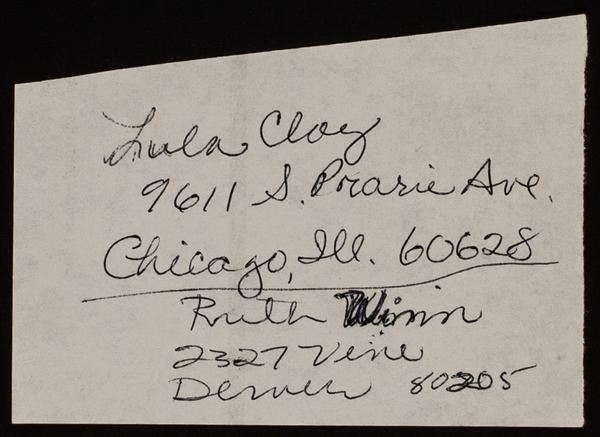 Lula Clay
9611 S. Prarie Ave.
Chicago, Ill. 60628
Ruth Winn
2327 Vine
Denver 80205